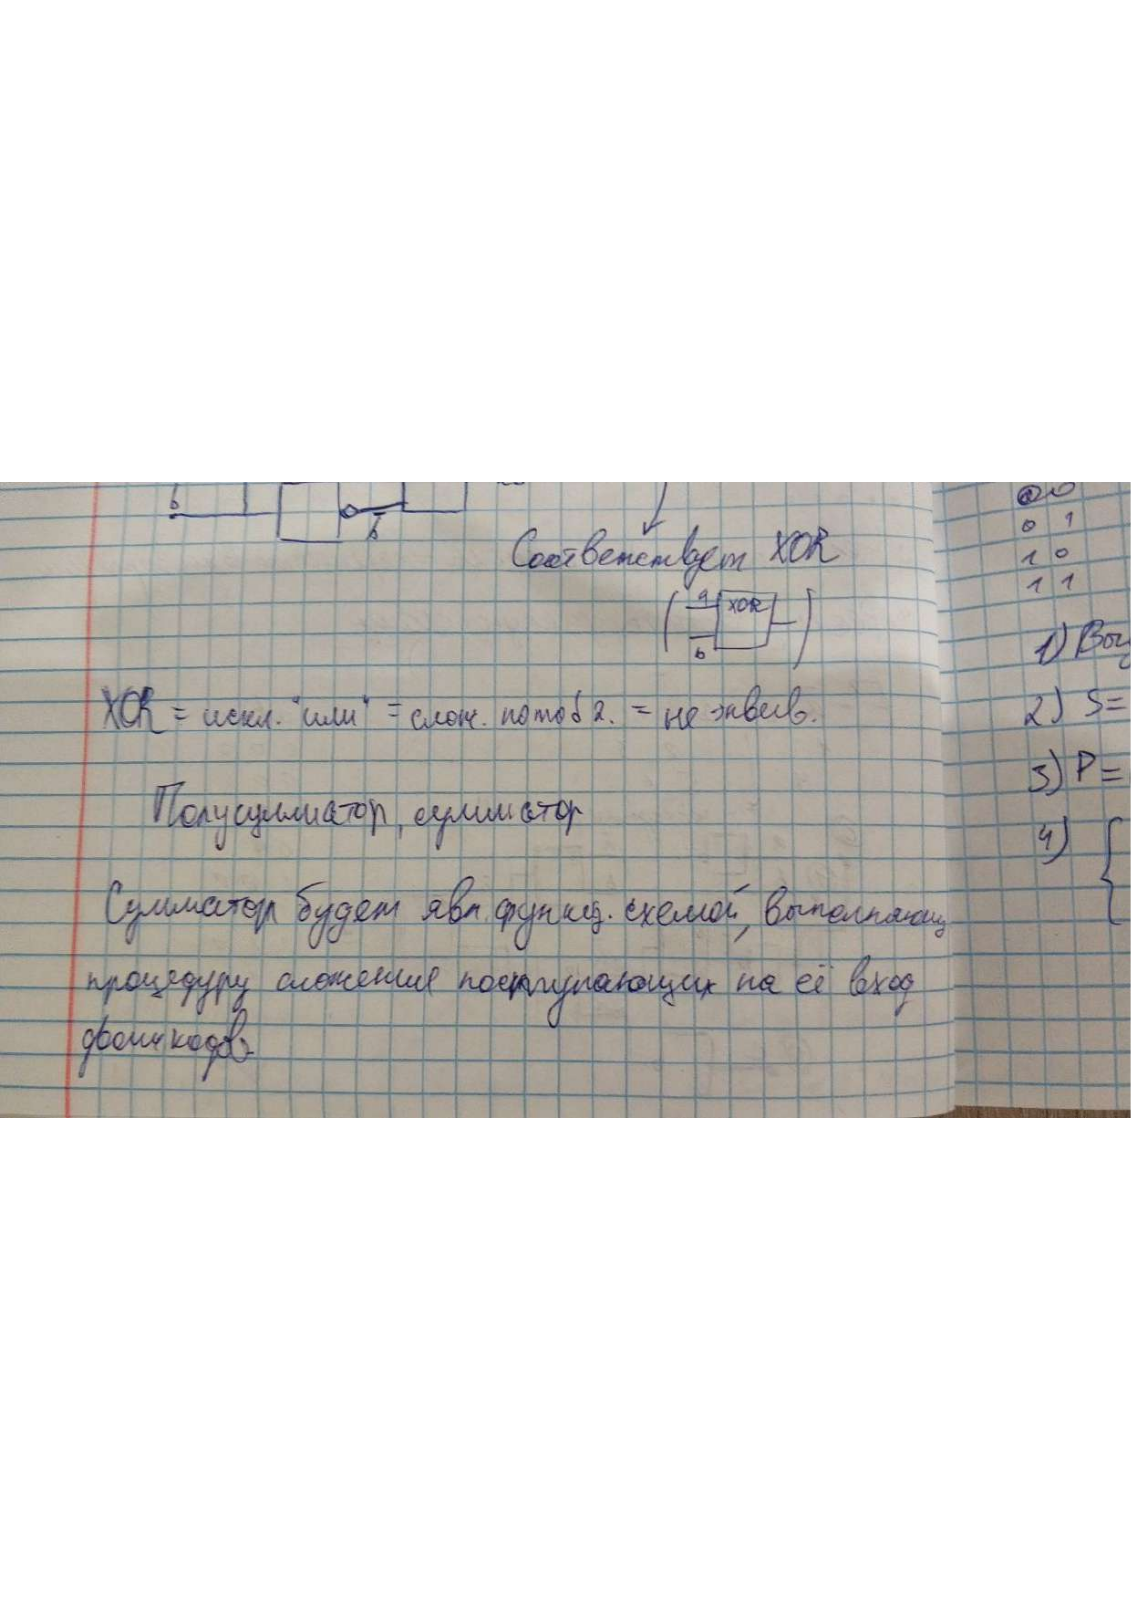 b
b
Соответствует XOR
a XOR
b
XOR = искл. "или" = слож. по mod 2. = не эквив.
Полусумматор, сумматор
Сумматор будет явл. функц. схемой, выполняющ
процедуру сложения поступающих на её вход
двоич кодов
0 0
0 1
1 0
1 1
1)
2) S =
3) P =
4) {